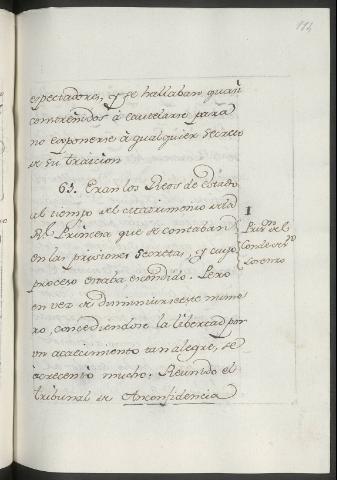 114
espectadores, y se hallaban quasi
constreñidos à cautelarse para
no exponerse à qualquier Secreto
de su traicion
63. Eran los Reos de Estado
al tiempo del Matrimonio de la
Rl. Princesa que se contaban
en las prisiones secretas, y cuyo
proceso estaba escondido. Pero
en vez de diminuirse este nume
ro, concediendose la libertad por
un acaecimiento tan alegre, se
acrecentò mucho. Reunido el
tribunal de Inconfidencia
1
Pris.on del
Conde de Sn.
Lorenzo